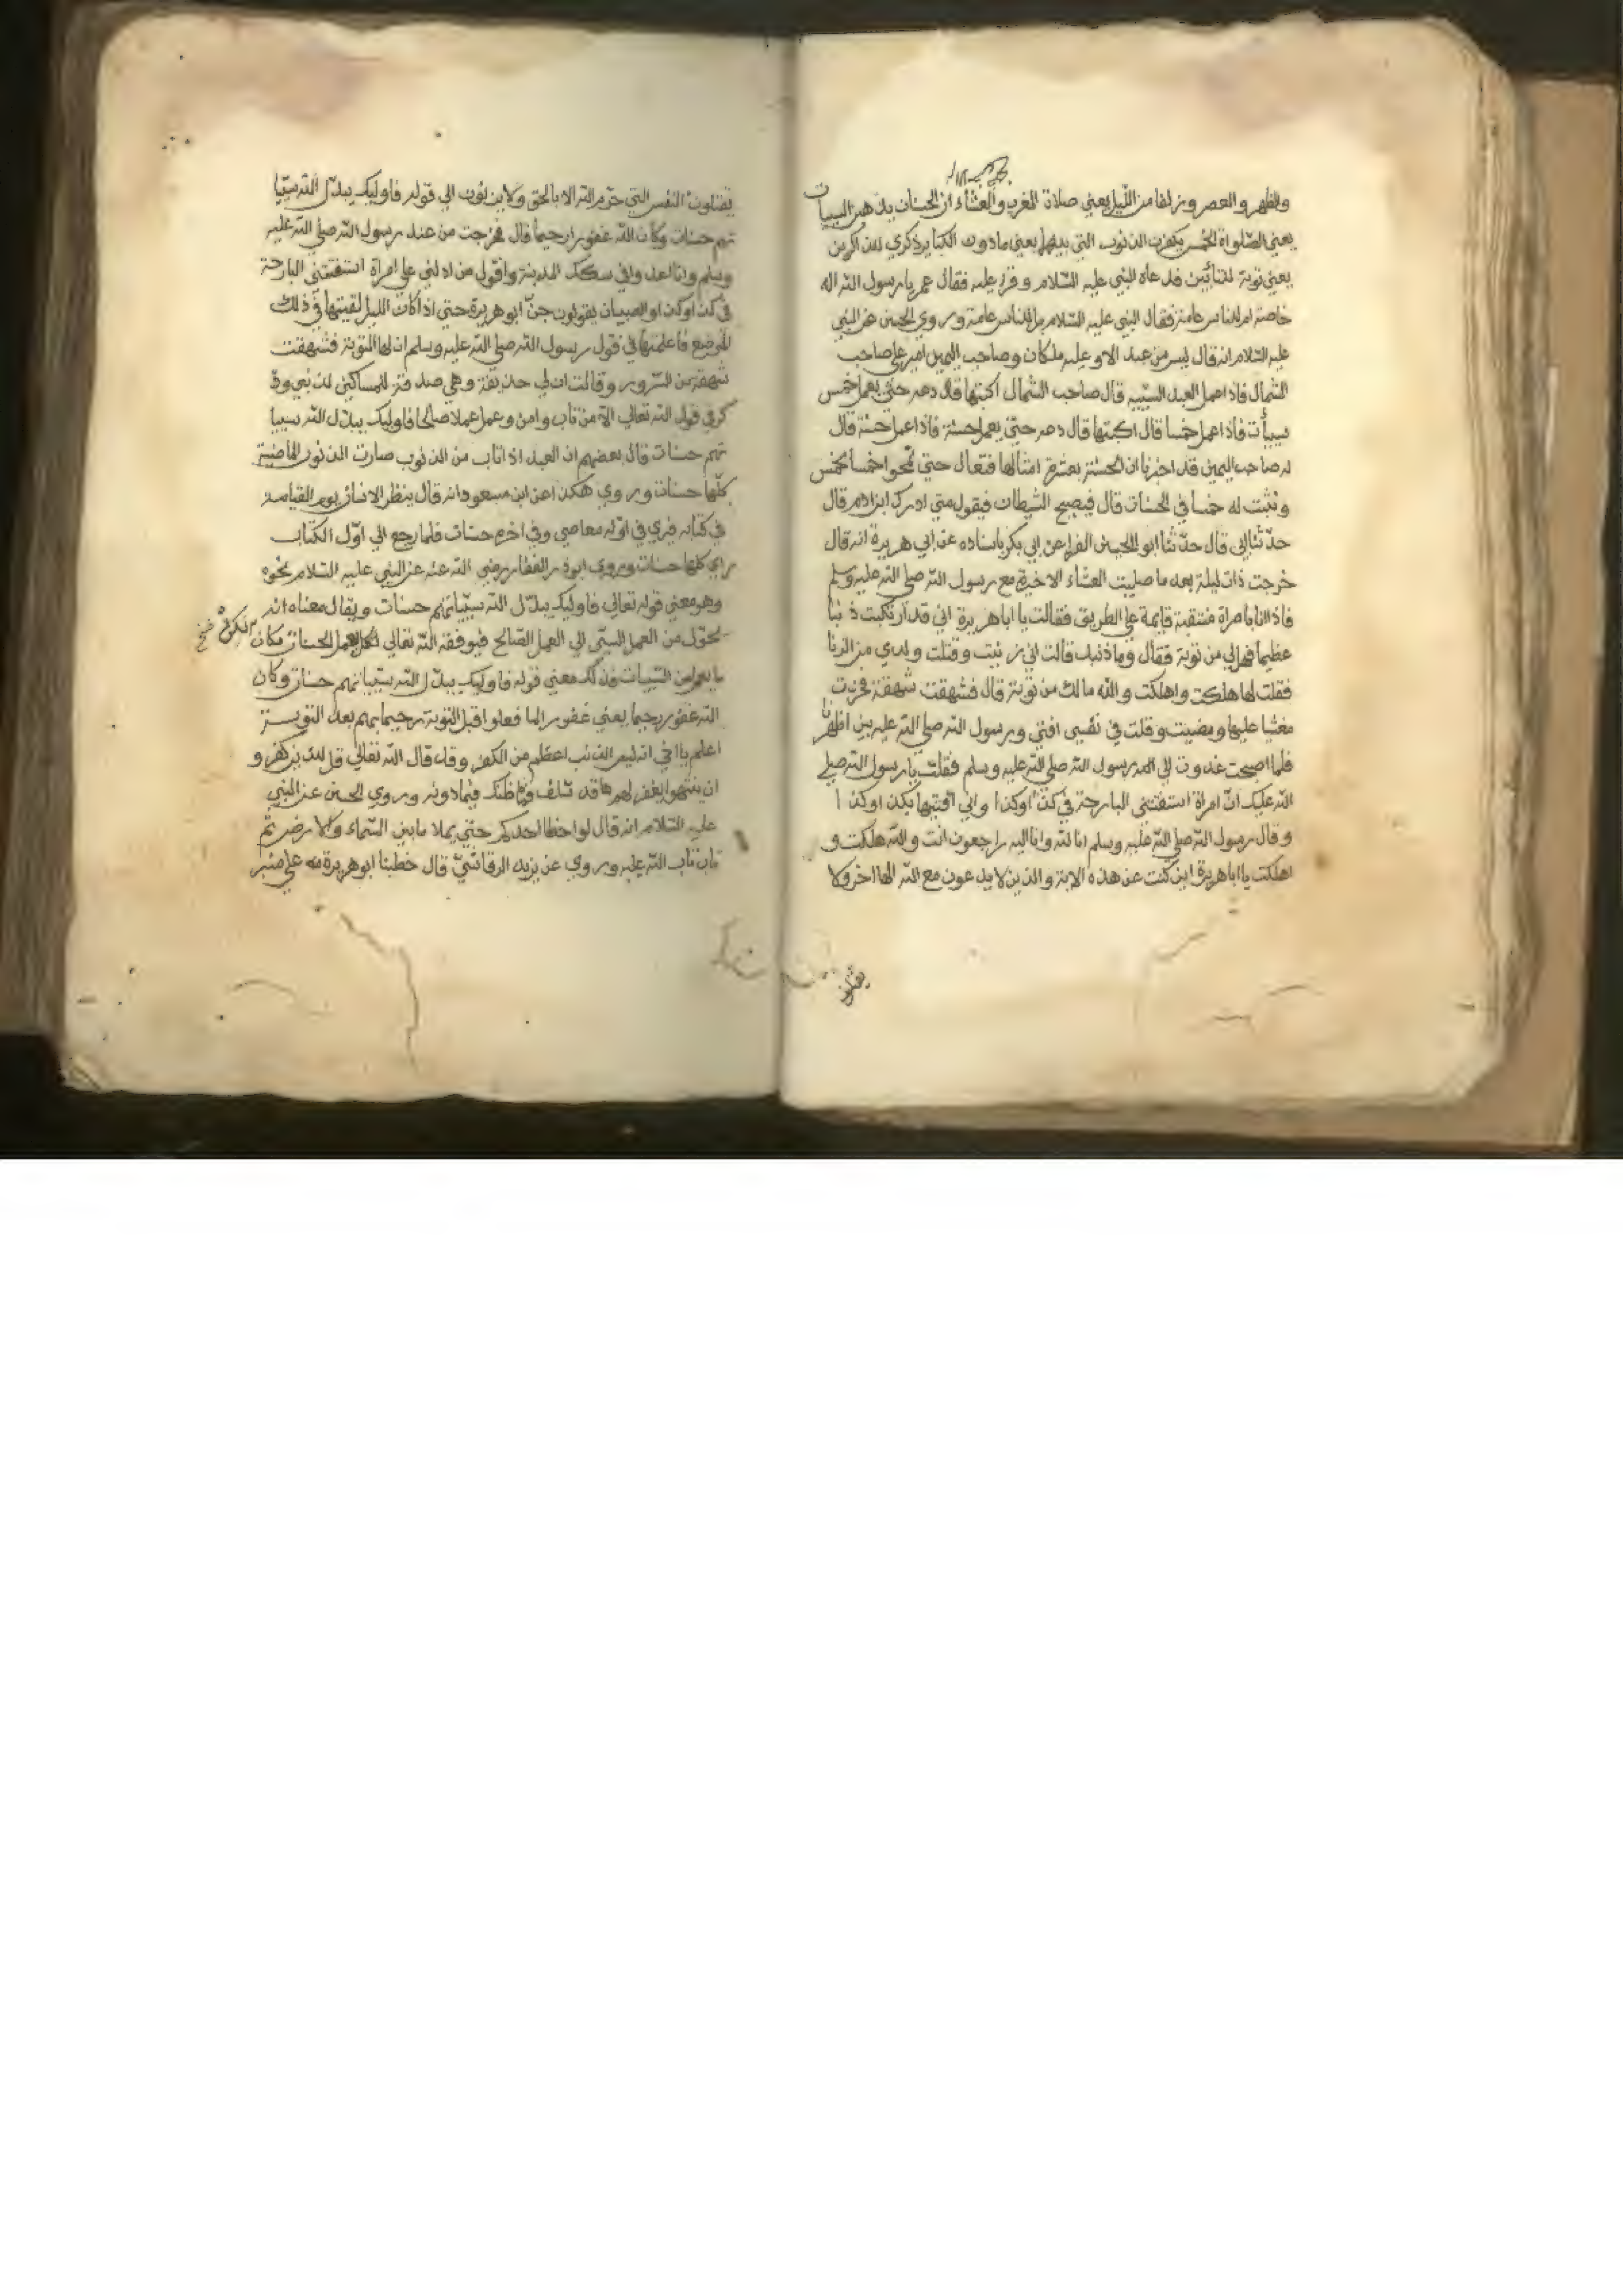 والظهر والعصر وزلفا من الليل يعني صلاة المغرب والعشاء ان الحسنات يذهبن السيات
يعني الصلواة الخمس يكفرن الذنوب التي بينهما يعني مادون الكباير ذكري للذاكرين
يعني توبة للتائبين فدعاه النبي عليه السلام وقرا عليه فقال عمر يا رسول الله اله
خاصة ام للناس عامة فقال النبي عليه السلام بل للناس عامة وروي الحسن عن النبي
عليه السلام انه قال ليس من عبد الا وعليه ملكان وصاحب اليمين امير علي صاحب
الشمال فاذا عمل العبد السيئة قال صاحب الشمال اكتبها قال دعه حتي يعمل خمس
سيئات فاذا عمل خمسا قال اكتبها قال دعه حتي يعمل حسنة فاذا عمل حسنة قال
له صاحب اليمين قد اخبرنا ان الحسنة بعشرة امثالها فتعال حتي نمحوا خمسا بخمس
ونثبت له خمسا في الحسنات قال فيصيح الشيطان فيقول متي ادرك ابن ادم قال
حدثنا ابي قال حدثنا ابو الحسن الفرا عن ابي بكر باسناده عن ابي هريرة انه قال
خرجت ذات ليلة بعد ما صليت العشاء الاخيرة مع رسول الله صلي الله عليه وسلم
فاذا انا بامراة منتقبة قايمة علي الطريق فقالت يا ابا هريرة اني قد ارتكبت ذنبا
عظيما فهل لي من توبة فقال وما ذنبك قالت اني زنيت وقتلت ولدي من الزنا
فقلت لها هلكت واهلكت والله مالك من توبة قال فشهقت شهقة فخرت
مغشيا عليها ومضيت وقلت في نفسي افتي ورسول الله صلي الله عليه بين اظهرنا
فلما اصبحت غدوت الي رسول الله صلي الله عليه وسلم فقلت يا رسول الله صلي
الله عليك ان امراة استفتتني البارحة في كذا وكذا واني افتيتها بكذا وكذا
وقال رسول الله صلي الله عليه وسلم انا لله وانا اليه راجعون انت والله هلكت و
اهلكت يا ابا هريرة اين كنت عن هذه الاية والذين لا يدعون مع الله الها اخر ولا
يقتلون
يقتلون النفس التي حرم الله الا بالحق ولا يزنون الي قوله فاوليك يبدل الله سيئا
تهم حسنات وكان الله غفورا رحيما قال فخرجت من عند رسول الله صلي الله عليه
وسلم وانا اعدو في سكك المدينة واقول من ادلني علي امراة استفتتني البارحة
في كذا وكذا والصبيان يقولون جن ابو هريرة حتي اذا كان الليل لقيتها في ذلك
الموضع فاعلمتها في قول رسول الله صلي الله عليه وسلم ان لها التوبة فشهقت
شهقة من السرور وقالت ان لي حديقة وهي صدقة للمساكين لذنبي وذ
كر في قول الله تعالي الا من تاب وامن وعمل عملا صالحا فاوليك يبدل الله سيئا
تهم حسنات قال بعضهم ان العبد اذا تاب من الذنوب صارت الذنوب الماضية
كلها حسنات وروي هكذا عن ابن مسعود انه قال ينظر الانسان يوم القيامة
في كتابه فيري في اوله معاصي وفي اخره حسنات فلما رجع الي اول الكتاب
راي كلها حسنات وروي ابوذر الغفاري رضي الله عنه عن النبي عليه السلام نحوه
وهو معني قوله تعالي فاوليك يبدل الله سيئاتهم حسنات ويقال معناه انه
تحول من العمل السيئ الي العمل الصالح فيوفقه الله تعالي لكي يعمل الحسنات مكان
ما يعمل من السيئات فذلك معني قوله فاوليك يبدل الله سيئاتهم حسنات وكان
الله غفورا رحيما يعني غفورا لما فعلوا قبل التوبة رحيما بهم بعد التوبة
اعلم يا اخي انه ليس الذنب اعظم من الكفر وقد قال الله تعالي قل للذين كفروا
ان ينتهوا يغفر لهم ما قد سلف فما ظنك فيما دونه وروي الحسن عن النبي
عليه السلام انه قال لو اخطا احدكم حتي يملا ما بين السماء والارض ثم
تاب تاب الله عليه وروي عن يزيد الرقاشي قال خطبنا ابو هريرة علي منبر